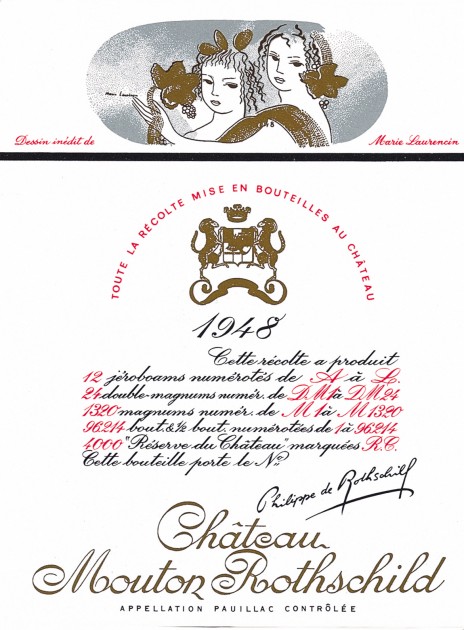 Marie Laurencin
Dessin inédit de
Marie Laurencin
TOUTE LA RÉCOLTE MISE EN BOUTEILLES AU CHÂTEAU
1948
Cette récolte a produit
12 jéroboams numérotés de A à L.
24 double-magnums numér. de D.M.1 à D.M.24
1320 magnums numér. de M.1 à M.1320
96214 bout. & ½ bout. numérotées de 1 à 96214
4000 "Réserve du Château" marquées R.C.
Cette bouteille porte le Nº
Philippe de Rothschild
Château
Mouton Rothschild
APPELLATION PAUILLAC CONTRÔLÉE